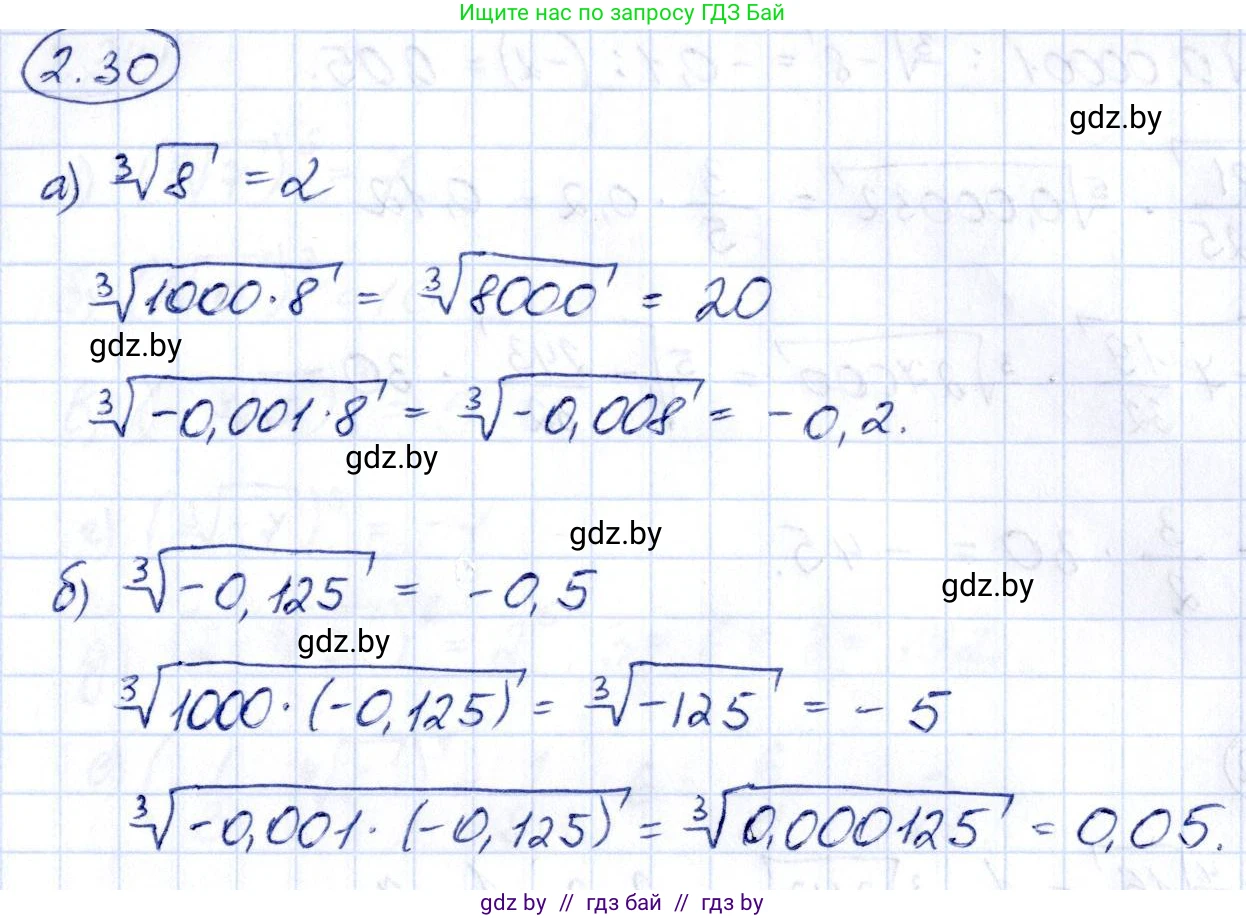 Ищите нас по запросу ГДЗ Бай
2.30
gdz.by
а) ∛8 = 2
∛(1000·8) = ∛8000 = 20
gdz.by
∛(-0,001·8) = ∛(-0,008) = -0,2.
gdz.by
gdz.by
б) ∛(-0,125) = -0,5
gdz.by
gdz.by
∛(1000·(-0,125)) = ∛(-125) = -5
∛(-0,001·(-0,125)) = ∛0,000125 = 0,05.
gdz.by // гдз бай // гдз by